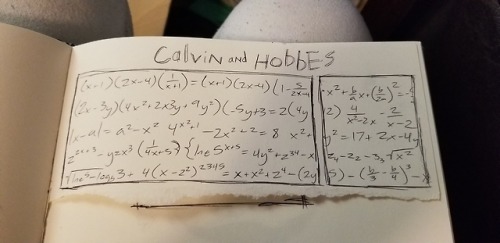 Calvin and HobbEs
(x+1)(2x-4)(1/x+1)=(x+1)(2x-4)(1-5/2x-4
(2x-3y)(4x²+2x3y+9y²)(-5y+3=2(4y
|x-a|=a²-x² 4^x²+1 -2x²+2=8 x²+
2^2x+3 -y=x³(1/4x+5){lne5^x+5=4y²+z³⁴-x
√lne⁵-log₅3+4(x-2²)²³⁴⁵ =x+x²+z⁴-(2y
x²+b/a x+(b/2a)²=-
2) 4/x²-2x - 2/x-2
y²=17+2x-4y
5)-(b/3-b/4)³-x